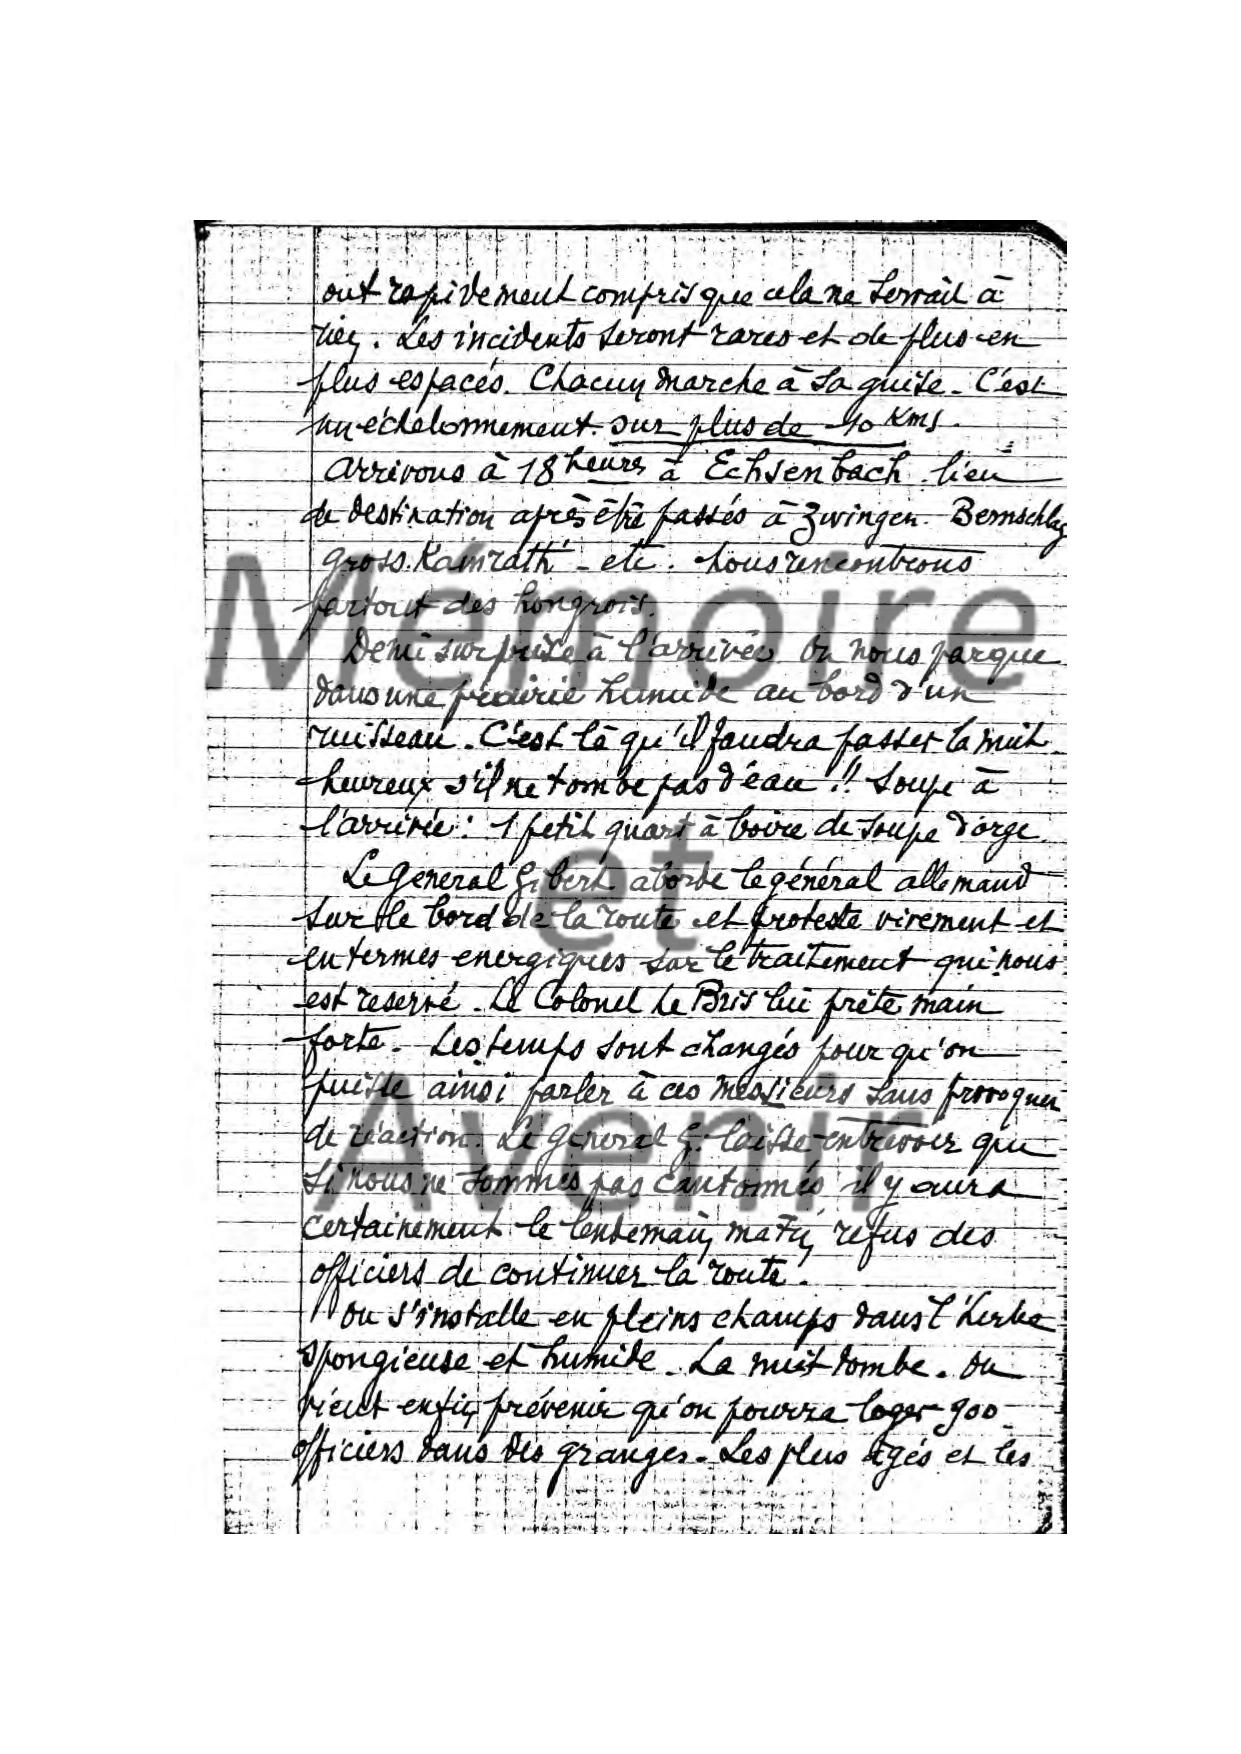 ont rapidement compris que cela ne servait à
rien. Les incidents seront rares et de plus en
plus espacés. Chacun marche à sa guise. C'est
un échelonnement sur plus de 10 Kms.
Arrivons à 18 heures à Echsenbach lieu
de destination après être passés à Zwingen. Bernschlag
gross. Kainrath - etc. nous rencontrons
partout des hongrois.
Demi surprise à l'arrivée. On nous parque
dans une prairie humide au bord d'un
ruisseau. C'est là qu'il faudra passer la nuit
heureux s'il ne tombe pas d'eau !! Soupe à
l'arrivée : 1 petit quart à boire de soupe d'orge.
Le Général Gibert aborde le général allemand
sur le bord de la route et proteste vivement et
en termes energiques sur le traitement qui nous
est reservé. Le Colonel Le Bris lui prête main
forte. Les temps sont changés pour qu'on
puisse ainsi parler à ces messieurs sans provoquer
de réaction. Le General G. laisse entrevoir que
si nous ne sommes pas cantonnés il y aura
certainement le lendemain matin refus des
officiers de continuer la route.
On s'installe en pleins champs dans l'herbe
spongieuse et humide. La nuit tombe. On
vient enfin prévenir qu'on pourra loger 900
officiers dans des granges. Les plus agés et les
Mémoire
et
Avenir